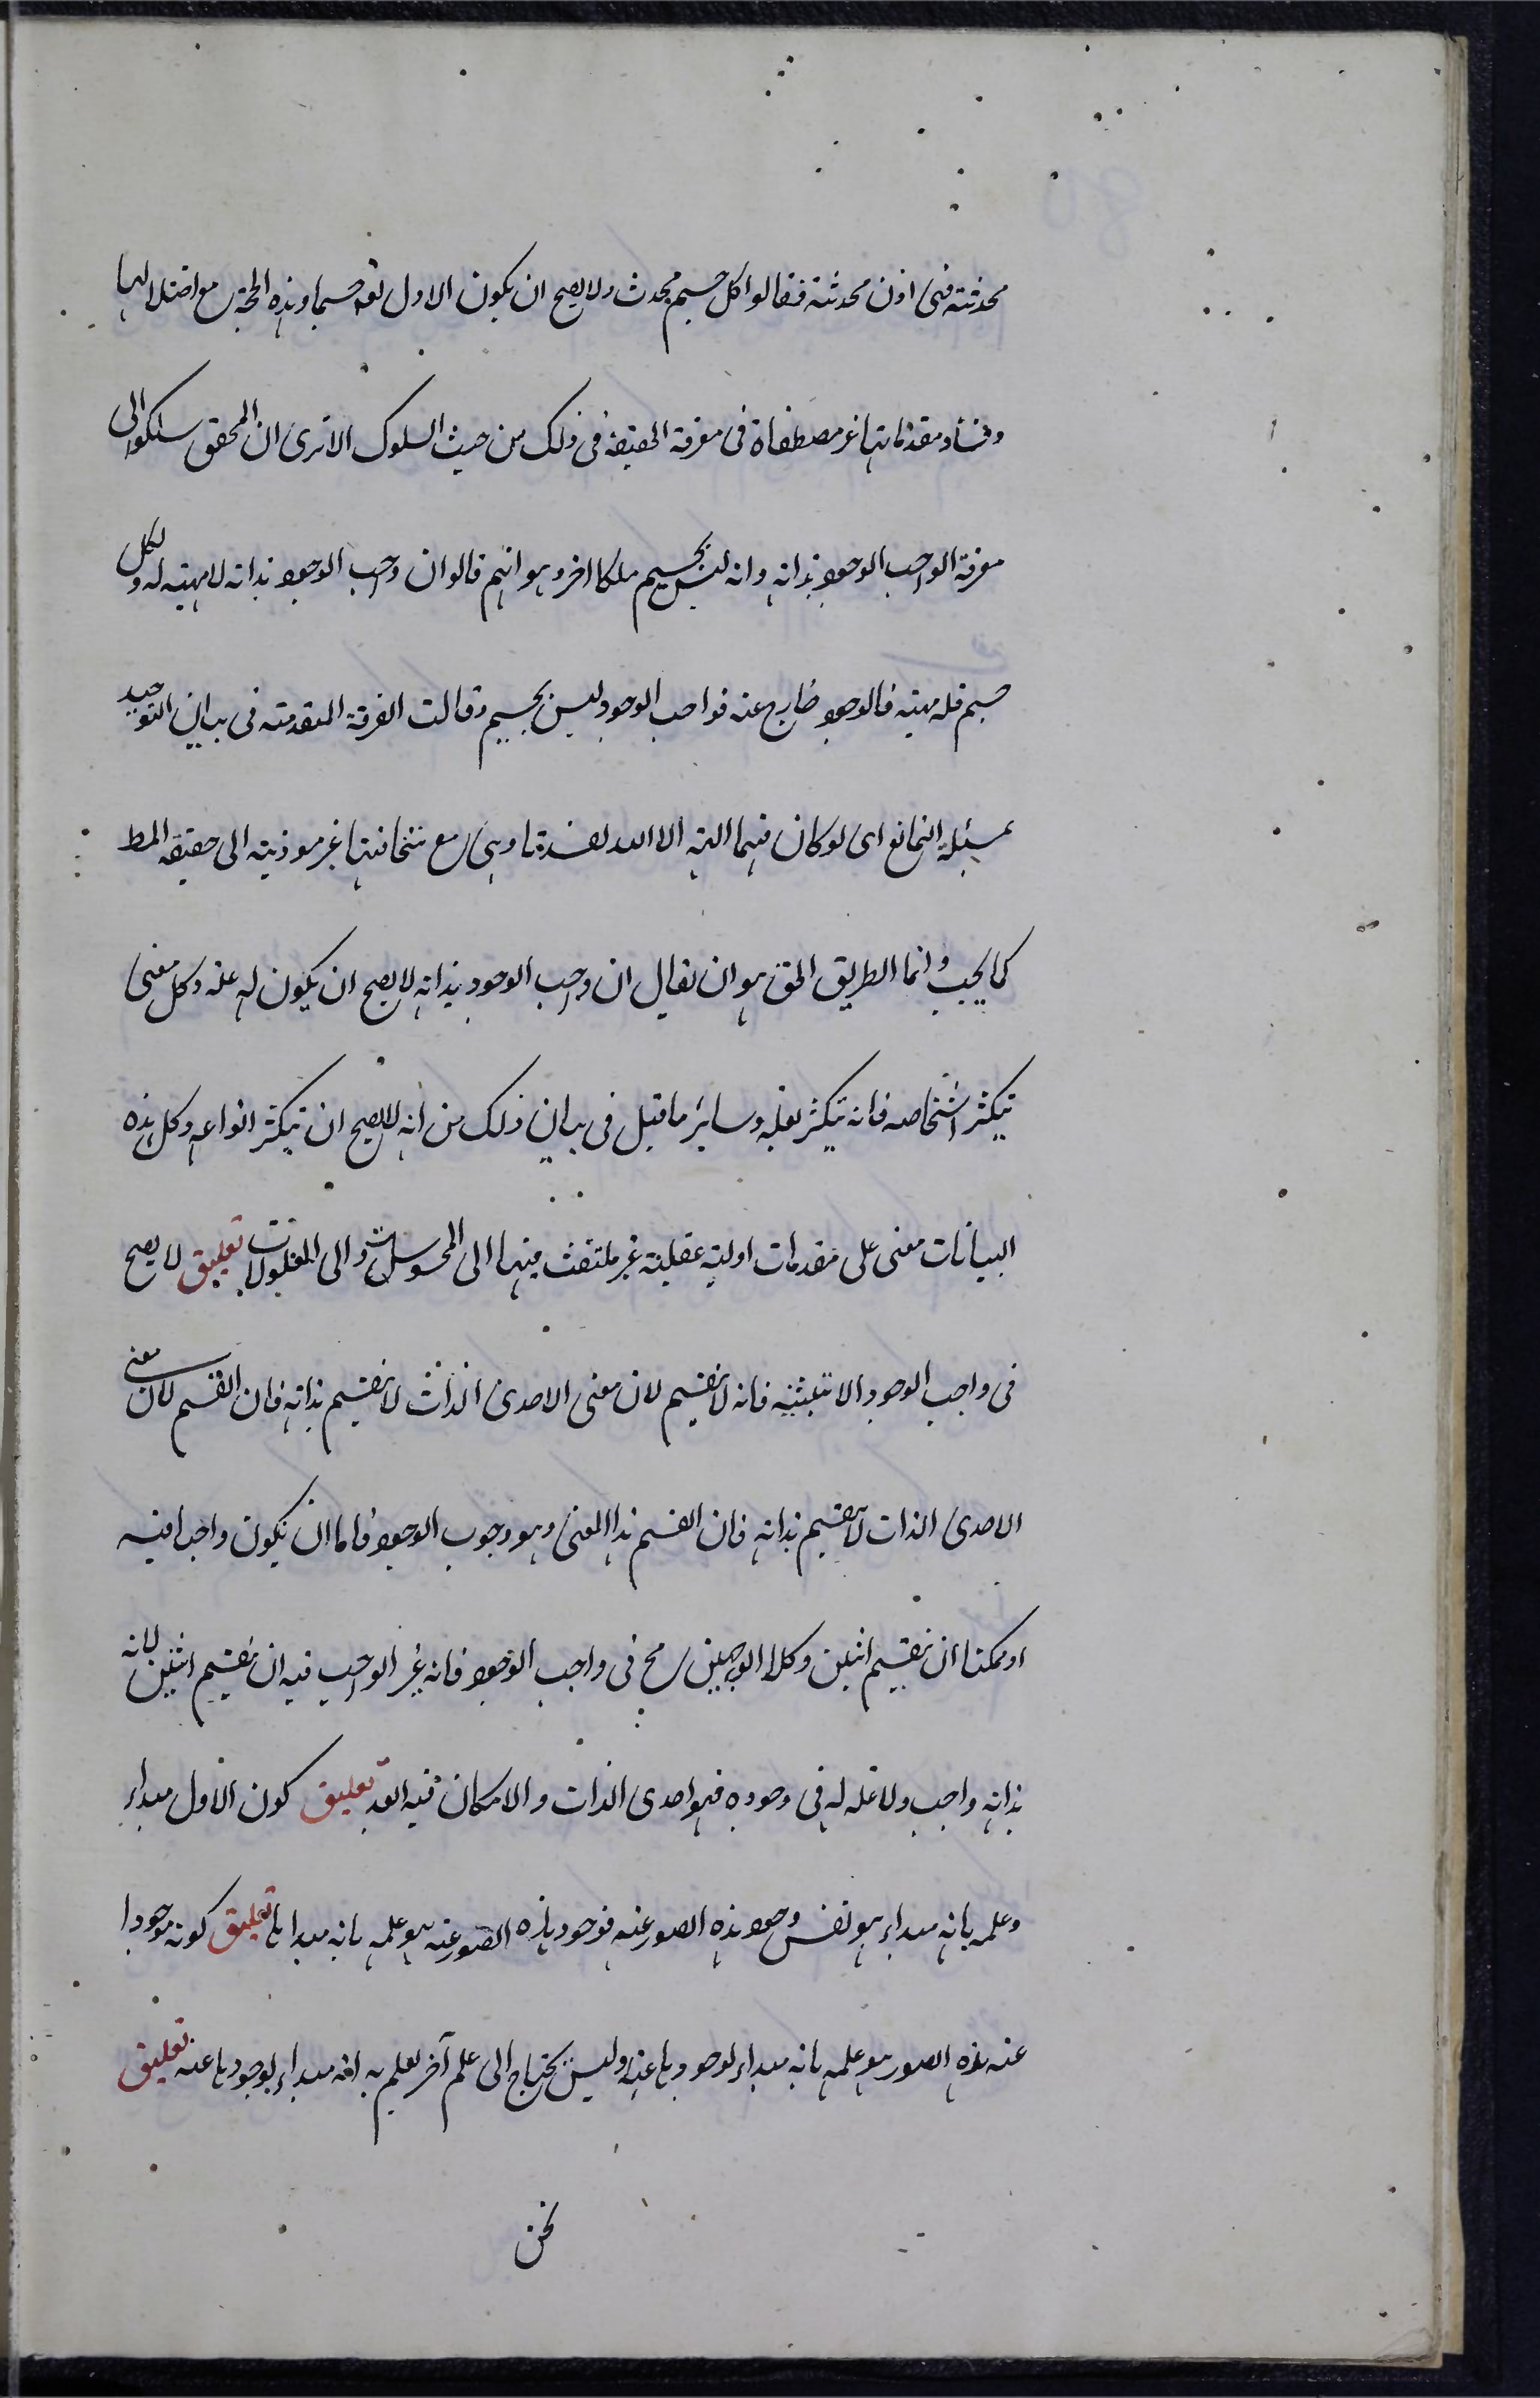 محدثة فهى اذن محدثة فقالوا كل جسم محدث ولا يصح ان يكون الاول تعه جسما وهذه الحجة مع اختلالها
وفساد مقدماتها غير مصطفاة فى معرفة الحقيقة فى ذلك من حيث السلوك الا ترى ان المحقق سلكوا الى
معرفة الواجب الوجود بذاته وانه ليس بجسيم ملكا اخر وهو انهم قالوا ان واجب الوجود بذاته لا مهية له وكل
جسم فله مهية فالوجود خارج عنه فواجب الوجود ليس بجسيم وقالت الفرقة المتقدمة فى بيان التوحيد
بمسئلة التمانع اى لو كان فيهما الهة الا الله لفسدتا وهى مع سخافتها غير موذية الى حقيقة المط
كما يجب وانما الطريق الحق هو ان يقال ان واجب الوجود بذاته لا يصح ان يكون له علة وكل معنى
يتكثر اشخاصه فانه يتكثر بعلة وساير ما قيل فى بيان ذلك من انه لا يصح ان يتكثر انواعه وكل هذه
البيانات مبنى على مقدمات اولية عقلية غير ملتفت فيها الى المحسوسات والى المعلولات تعليق لا يصح
فى واجب الوجود الاثنينية فانه لا ينقسم لان معنى الاحدى الذات لا ينقسم بذاته فان انقسم لان معنى
الاحدى الذات لا ينقسم بذاته فان انقسم هذا المعنى وهو وجوب الوجود فاما ان يكون واجبا فيه
او ممكنا ان ينقسم اثنين وكلا الوجهين مح فى واجب الوجود فانه غير الواجب فيه ان ينقسم اثنين لانه
بذاته واجب ولا علة له فى وجوده فهو احدى الذات والامكان فيه ابعد تعليق كون الاول مبداء
وعلمه بانه مبداء هو نفس وجود هذه الصور عنه فوجود هذه الصور عنه هو علمه بانه مبداها تعليق كونه موجودا
عنه هذه الصور هو علمه بانه مبداء لوجودها عنه وليس يحتاج الى علم آخر يعلم به انه مبداء لوجودها عنه تعليق
نحن